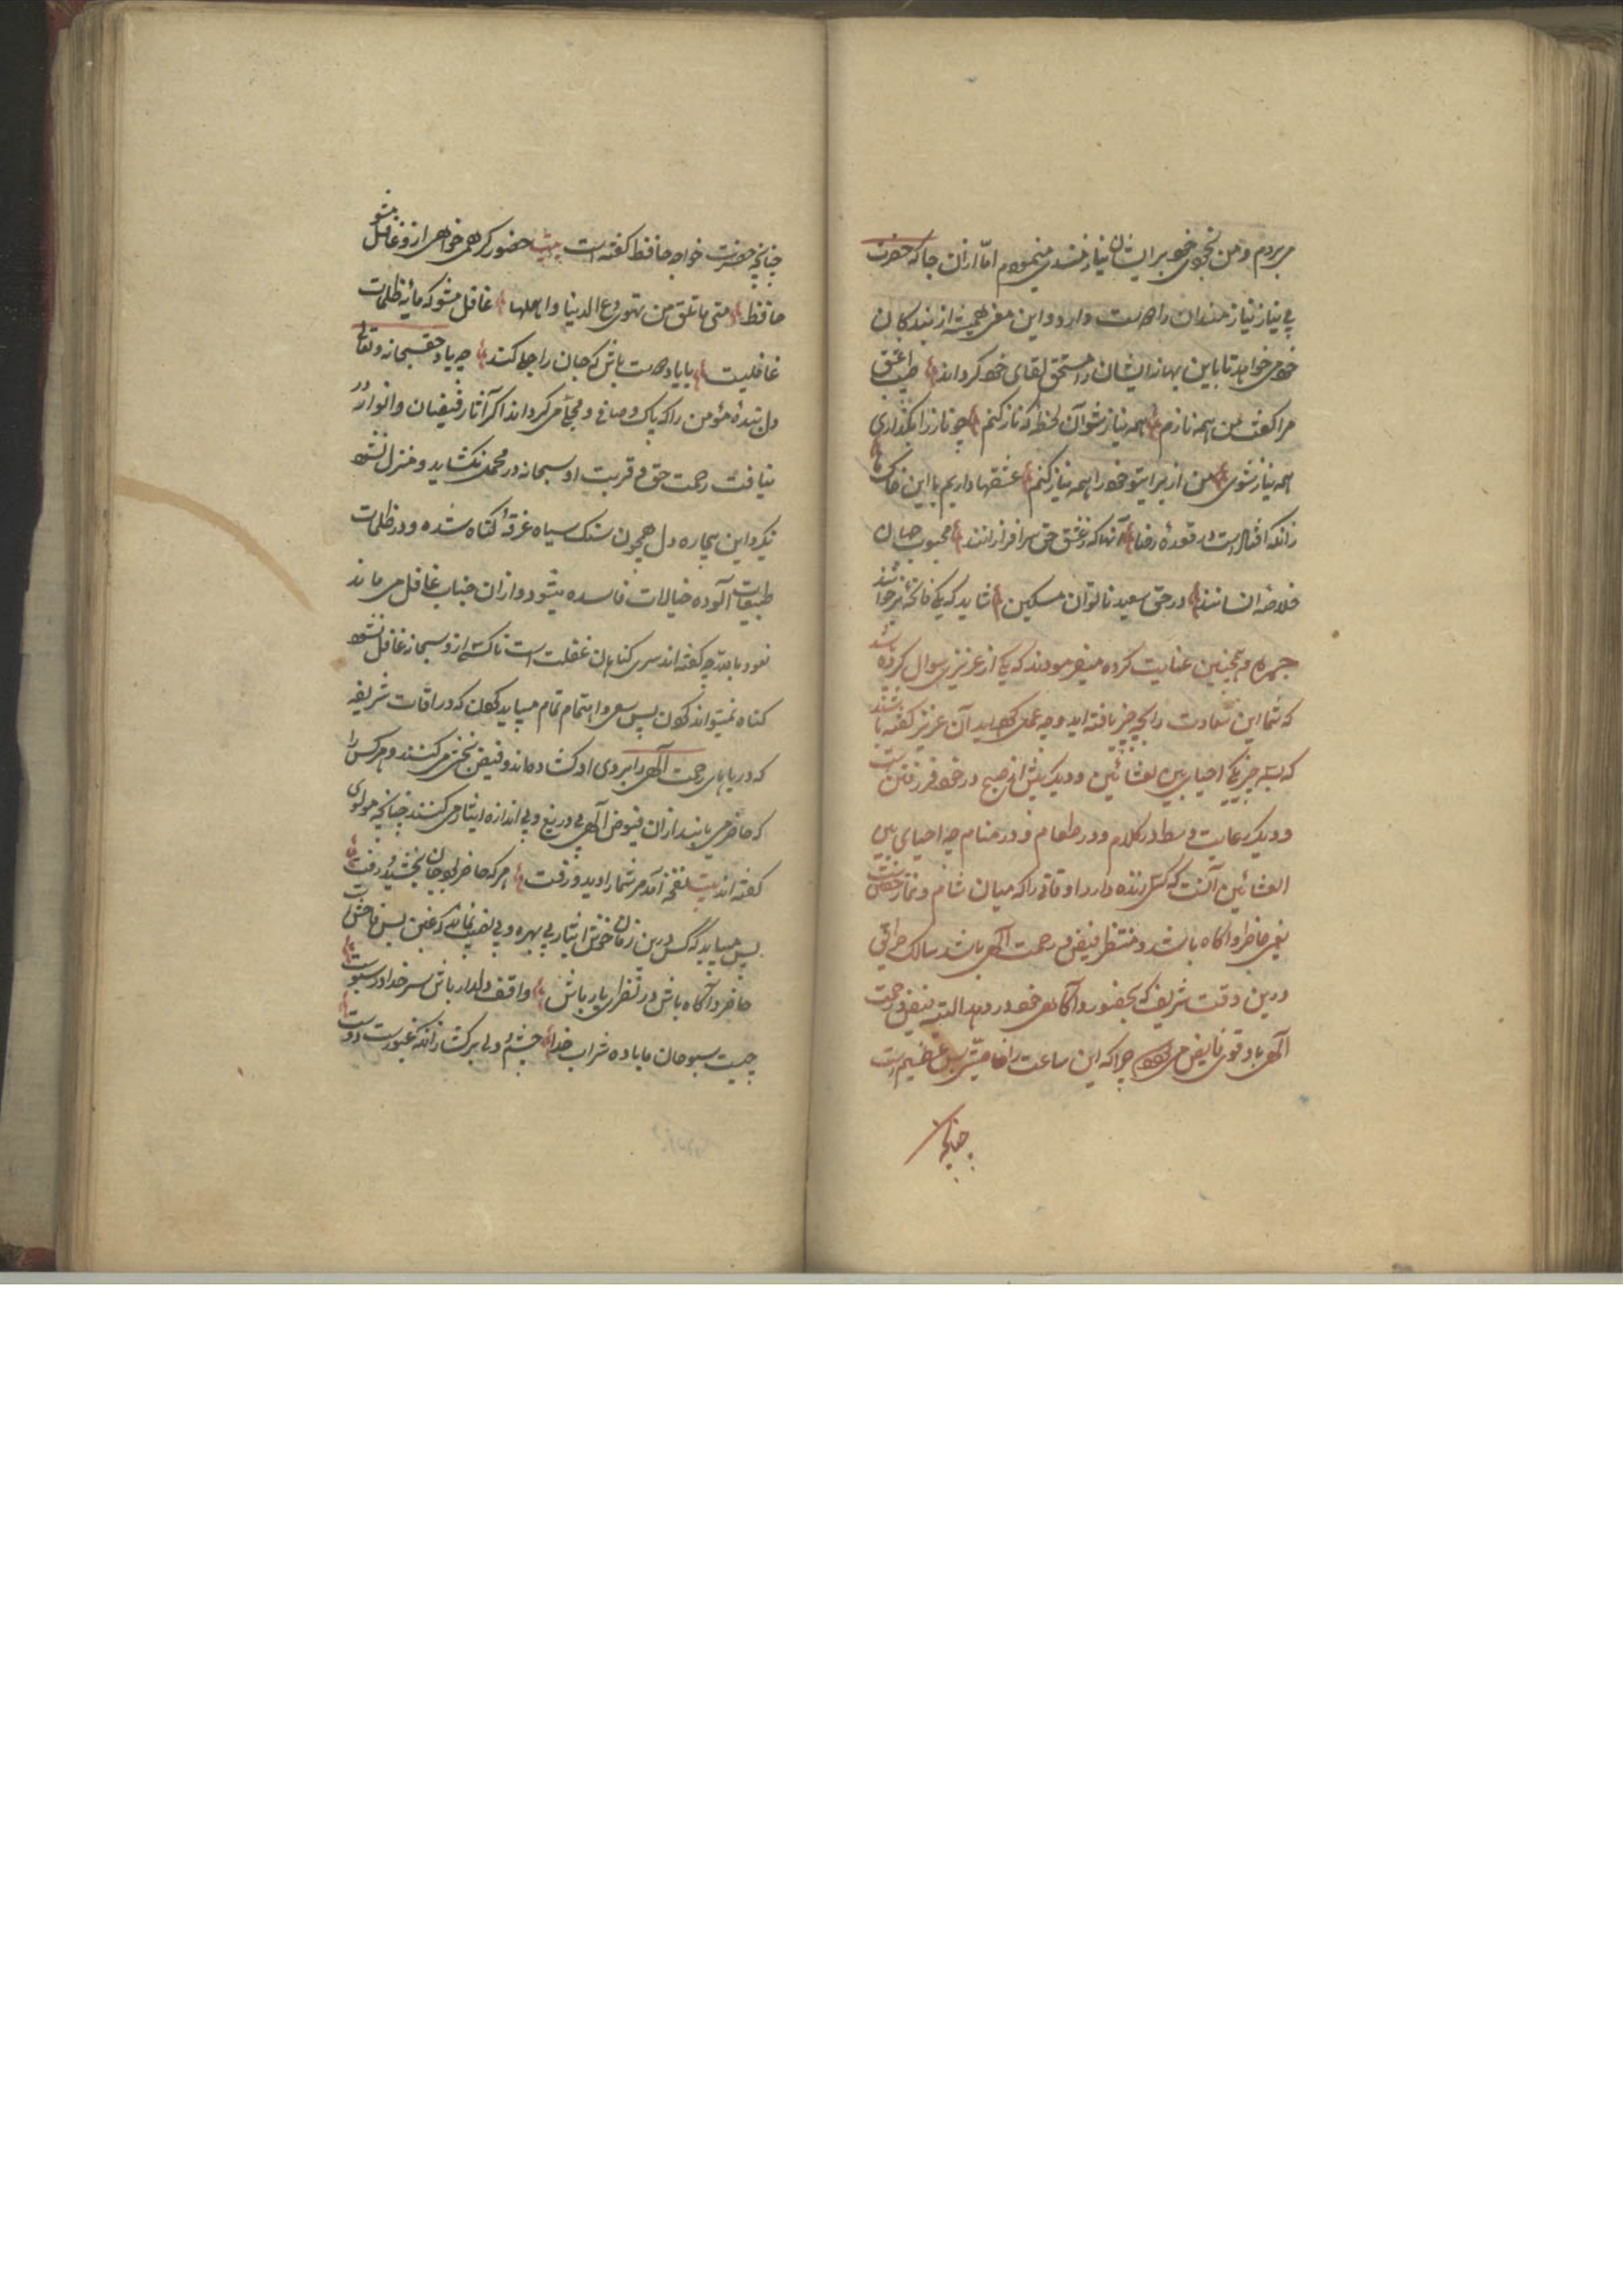 می بردم و من بخوی خود برایشان نیازمندی مینمودم اما از آن جا که حضرت
بی نیاز نیازمندان را دوست دارد و این معنی همیشه از بندکان
خود می خواهد تا باین بهانه ایشان را مستحق لقای خود کرداند طبیب عشق
مرا کفت من همه نازم همه نیاز شو آن لحظه که ناز کنم چو ناز را بکذاری
همه نیاز شوی من از برای تو خود را همه نیاز کنم عشقها داریم با این خاک ما
زانکه افتاده است در قعده رضا آنها که ز عشق حق سرافرازانند محبوب جهان
خلاصه انسانند در حق سعید ناتوان مسکین شاید که یکی فاتحه برخوانند
جمره و همچنین عنایت کرده میفرمودند که یکی از عزیزی سوال کرده باشد
که شما این سعادت را بچه چیز یافته اید و چه عمل کرده اید آن عزیز کفته باشند
که بسه چیز یکی احیای بین العشائین و دیکر پیش از صبح در خود فرو رفتن است
و دیکر رعایت وسط در کلام و در طعام و در منام چه احیای بین
العشائین آنست که کسی زنده دارد اوقاتی را که میان شام و نماز خفتن است
یعنی حاضر و آکاه باشد و منتظر فیض و رحمت الهی باشد سالک طریق
درین وقت شریف که بحضور و آکاهی خود در دهد البته فیض و رحمت
الهی باو قوی فایض می شود چرا که این ساعت را خاصیتی بس عظیم است
چنانچه
چنانچه حضرت خواجه حافظ کفته است بیت حضور کر همی خواهی ازو غافل مشو
حافظ متی ما تلق من تهوی دع الدنیا و اهملها غافل مشو که مایه ظلمات
غافلیست با یاد دوست باش که جان را جلا کند چه یاد حق سبحانه و تعالی
دل بنده مؤمن را که پاک و صافی و مجلا می کرداند اکر آثار فیضان و انوار در
نیافت رحمت حق و قربت او سبحانه در محمد نکشاید و منزل نشود
نکرد این بیچاره دل همچون سنک سیاه غرقه کناه شده و در ظلمات
طبیعات آلوده خیالات فاسده میشود و از آن جناب غافل می ماند
نعوذ بالله چه کفته اند سری کناهان غفلت است تا کسی ازو سبحانه غافل نشود
کناه نمیتواند کردن پس سعی و اهتمام تمام میباید کردن که در اوقات شریفه
که دریاهای رحمت الهی را بروی او کشاده اند و فیض بخشی می کنند و هر کس را
که حاضر می یابند از آن فیوض الهی بی دریغ و بی اندازه ایثار می کنند چنانچه مولوی
کفته اند بیت نفخه آمد مر شما را دید و رفت هر که حاضر بود جان بخشید و رفت
پس میباید که کس درین زمان خوش ایثار بی بهره و بی نصیب نماند که غبن بس فاحش است
حاضر و آکاه باش در نظر یار باش واقف دلدار باش سر خدا در سبوست
چیست سبو جان ما باده شراب خدا چشم دلی برکشا زانکه غیورست دوست